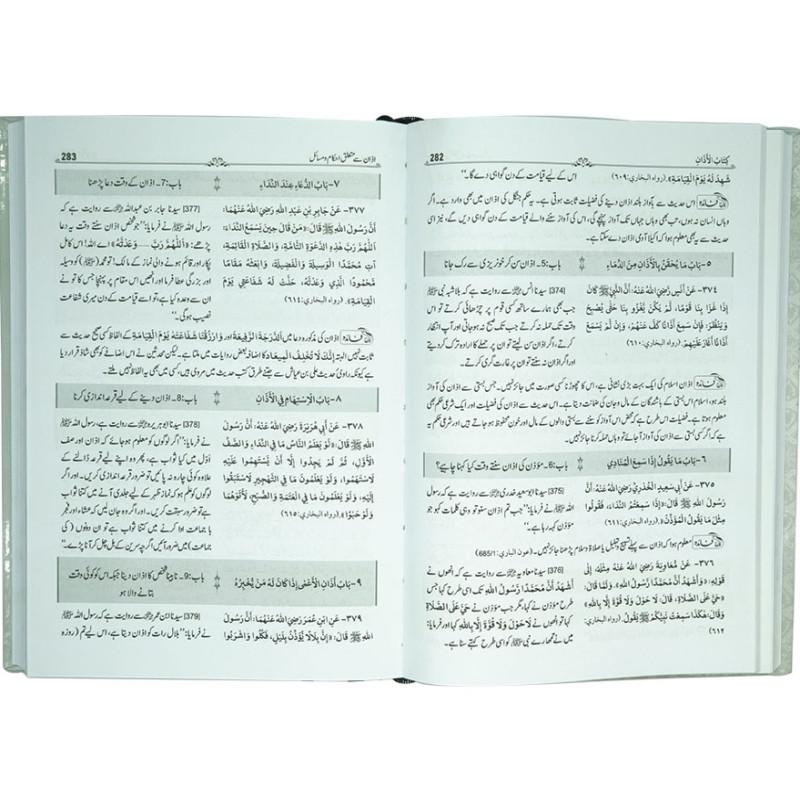 كِتَابُ الْأَذَانِ
282
شَهِدَ لَهُ يَوْمَ الْقِيَامَةِ». (رواه البخاري: ٦٠٩)
اس کے لیے قیامت کے دن گواہی دے گا۔"
فائدہ: اس حدیث سے بآواز بلند اذان دینے کی فضیلت ثابت ہوتی ہے۔ یہ حکم جنگل کی اذان میں بھی وارد ہے۔ اگر
وہاں انسان نہ ہوں، جب بھی وہاں جہاں تک آواز پہنچے گی، اس کی آواز سننے والے قیامت کے دن گواہی دیں گے، نیز اس
حدیث سے یہ بھی معلوم ہوا کہ اکیلا آدمی اذان دے سکتا ہے۔
٥- بَابُ مَا يُحْقَنُ بِالْأَذَانِ مِنَ الدِّمَاءِ
باب: 5۔ اذان سن کر خونریزی سے رک جانا
٣٧٤- عَنْ أَنَسٍ رَضِيَ اللهُ عَنْهُ: أَنَّ النَّبِيَّ ﷺ كَانَ
إِذَا غَزَا بِنَا قَوْمًا، لَمْ يَكُنْ يَغْزُو بِنَا حَتَّى يُصْبِحَ
وَيَنْظُرَ: فَإِنْ سَمِعَ أَذَانًا كَفَّ عَنْهُمْ، وَإِنْ لَمْ يَسْمَعْ
أَذَانًا أَغَارَ عَلَيْهِمْ. (رواه البخاري: ٦١٠)
[374] سیدنا انس رضی اللہ عنہ سے روایت ہے کہ بلاشبہ نبی ﷺ
جب بھی ہمارے ساتھ کسی قوم پر چڑھائی کرتے تو اس
وقت تک حملہ نہ کرتے جب تک صبح نہ ہو جاتی اور آپ انتظار
کرتے۔ اگر اذان سن لیتے تو ان پر حملے کا ارادہ ترک کر دیتے
اور اگر اذان نہ سنتے تو ان پر غارت گری کرتے۔
فائدہ: اذان اسلام کی ایک بہت بڑی نشانی ہے، اس کا چھوڑنا کسی صورت میں جائز نہیں۔ جس بستی سے اذان کی آواز
٦- بَابُ مَا يَقُولُ إِذَا سَمِعَ الْمُنَادِي
باب: 6۔ مؤذن کی اذان سنتے وقت کیا کہنا چاہیے؟
٣٧٥- عَنْ أَبِي سَعِيدٍ الْخُدْرِيِّ رَضِيَ اللهُ عَنْهُ: أَنَّ
رَسُولَ اللهِ ﷺ قَالَ: «إِذَا سَمِعْتُمُ النِّدَاءَ، فَقُولُوا
مِثْلَ مَا يَقُولُ الْمُؤَذِّنُ». (رواه البخاري: ٦١١)
[375] سیدنا ابو سعید خدری رضی اللہ عنہ سے روایت ہے کہ رسول اللہ
ﷺ نے فرمایا: "جب تم اذان سنو تو وہی کلمات کہو جو
مؤذن کہہ رہا ہے۔"
فائدہ: معلوم ہوا کہ اذان سے پہلے تسبیح و تہلیل یا صلاۃ و سلام پڑھنا جائز نہیں۔ (عون الباری: 685/1)
٣٧٦- عَنْ مُعَاوِيَةَ رَضِيَ اللهُ عَنْهُ مِثْلَهُ، إِلَى
قَوْلِهِ: وَأَشْهَدُ أَنَّ مُحَمَّدًا رَسُولُ اللهِ، وَلَمَّا
قَالَ: حَيَّ عَلَى الصَّلَاةِ، قَالَ: لَا حَوْلَ وَلَا قُوَّةَ إِلَّا بِاللهِ،
وَقَالَ: هٰكَذَا سَمِعْتُ نَبِيَّكُمْ ﷺ يَقُولُ. (رواه البخاري:
٦١٢)
[376] سیدنا معاویہ رضی اللہ عنہ سے روایت ہے کہ انھوں نے
أَشْهَدُ أَنَّ مُحَمَّدًا رَسُولُ اللهِ تک اسی طرح کہا جس
طرح مؤذن نے کہا، لیکن جب مؤذن نے حَيَّ عَلَى الصَّلَاةِ
کہا تو انھوں نے لَا حَوْلَ وَلَا قُوَّةَ إِلَّا بِاللهِ کہا اور فرمایا:
میں نے تمھارے نبی ﷺ کو اسی طرح کہتے سنا ہے۔
اذان سے متعلق احکام و مسائل
283
٧- بَابُ الدُّعَاءِ عِنْدَ النِّدَاءِ
باب: 7۔ اذان کے وقت دعا پڑھنا
٣٧٧- عَنْ جَابِرِ بْنِ عَبْدِ اللهِ رَضِيَ اللهُ عَنْهُمَا:
أَنَّ رَسُولَ اللهِ ﷺ قَالَ: «مَنْ قَالَ حِينَ يَسْمَعُ النِّدَاءَ:
اَللّٰهُمَّ رَبَّ هٰذِهِ الدَّعْوَةِ التَّامَّةِ، وَالصَّلَاةِ الْقَائِمَةِ،
آتِ مُحَمَّدًا الْوَسِيلَةَ وَالْفَضِيلَةَ، وَابْعَثْهُ مَقَامًا
مَحْمُودًا الَّذِي وَعَدْتَهُ، حَلَّتْ لَهُ شَفَاعَتِي يَوْمَ
الْقِيَامَةِ». (رواه البخاري: ٦١٤)
[377] سیدنا جابر بن عبد اللہ رضی اللہ عنہ سے روایت ہے کہ
رسول اللہ ﷺ نے فرمایا: "جو شخص اذان سنتے وقت یہ دعا
پڑھے: «اَللّٰهُمَّ رَبَّ ..... وَعَدْتَهُ» "اے اللہ! اس کامل
پکار اور قائم ہونے والی نماز کے مالک! تو محمد (ﷺ) کو وسیلہ
اور بزرگی عطا فرما اور انھیں اس مقام پر پہنچا جس کا تو نے
ان سے وعدہ کیا ہے، تو اسے قیامت کے دن میری شفاعت
نصیب ہوگی۔"
فائدہ: اذان کی مذکورہ دعا میں اَلدَّرَجَةَ الرَّفِيعَةَ اور وَارْزُقْنَا شَفَاعَتَهُ يَوْمَ الْقِيَامَةِ کے الفاظ کسی صحیح حدیث سے
ثابت نہیں، البتہ إِنَّكَ لَا تُخْلِفُ الْمِيعَادَ کا اضافہ بعض روایات میں ملتا ہے۔ لیکن محدثین نے اس اضافے کو بھی شاذ قرار دیا
٨- بَابُ الِاسْتِهَامِ فِي الْأَذَانِ
باب: 8۔ اذان دینے کے لیے قرعہ اندازی کرنا
٣٧٨- عَنْ أَبِي هُرَيْرَةَ رَضِيَ اللهُ عَنْهُ: أَنَّ رَسُولَ
اللهِ ﷺ قَالَ: «لَوْ يَعْلَمُ النَّاسُ مَا فِي النِّدَاءِ وَالصَّفِّ
الْأَوَّلِ، ثُمَّ لَمْ يَجِدُوا إِلَّا أَنْ يَسْتَهِمُوا عَلَيْهِ
لَاسْتَهَمُوا، وَلَوْ يَعْلَمُونَ مَا فِي التَّهْجِيرِ لَاسْتَبَقُوا
إِلَيْهِ، وَلَوْ يَعْلَمُونَ مَا فِي الْعَتَمَةِ وَالصُّبْحِ، لَأَتَوْهُمَا
وَلَوْ حَبْوًا». (رواه البخاري: ٦١٥)
[378] سیدنا ابو ہریرہ رضی اللہ عنہ سے روایت ہے، رسول اللہ ﷺ
نے فرمایا: "اگر لوگوں کو معلوم ہو جائے کہ اذان اور صف
اوّل میں کیا ثواب ہے، پھر وہ اپنے لیے قرعہ ڈالنے کے
علاوہ کوئی چارہ نہ پائیں تو ضرور قرعہ اندازی کریں۔ اور اگر
لوگوں کو علم ہو کہ نماز ظہر کے لیے جلدی آنے میں کتنا ثواب
ہے تو ضرور سبقت کریں۔ اور اگر وہ جان لیں کہ عشاء اور فجر
با جماعت ادا کرنے میں کتنا ثواب ہے تو ان دونوں (کی
جماعت) میں ضرور آئیں اگرچہ سرین کے بل چل کر آنا پڑے۔"
٩- بَابُ أَذَانِ الْأَعْمٰى إِذَا كَانَ لَهُ مَنْ يُخْبِرُهُ
باب: 9۔ نابینا شخص کا اذان دینا جبکہ اس کو کوئی وقت
بتانے والا ہو
٣٧٩- عَنِ ابْنِ عُمَرَ رَضِيَ اللهُ عَنْهُمَا: أَنَّ رَسُولَ
اللهِ ﷺ قَالَ: «إِنَّ بِلَالًا يُؤَذِّنُ بِلَيْلٍ، فَكُلُوا وَاشْرَبُوا
[379] سیدنا ابن عمر رضی اللہ عنہما سے روایت ہے کہ رسول اللہ ﷺ
نے فرمایا: "بلال رات کو اذان دیتا ہے، اس لیے تم (روزہ